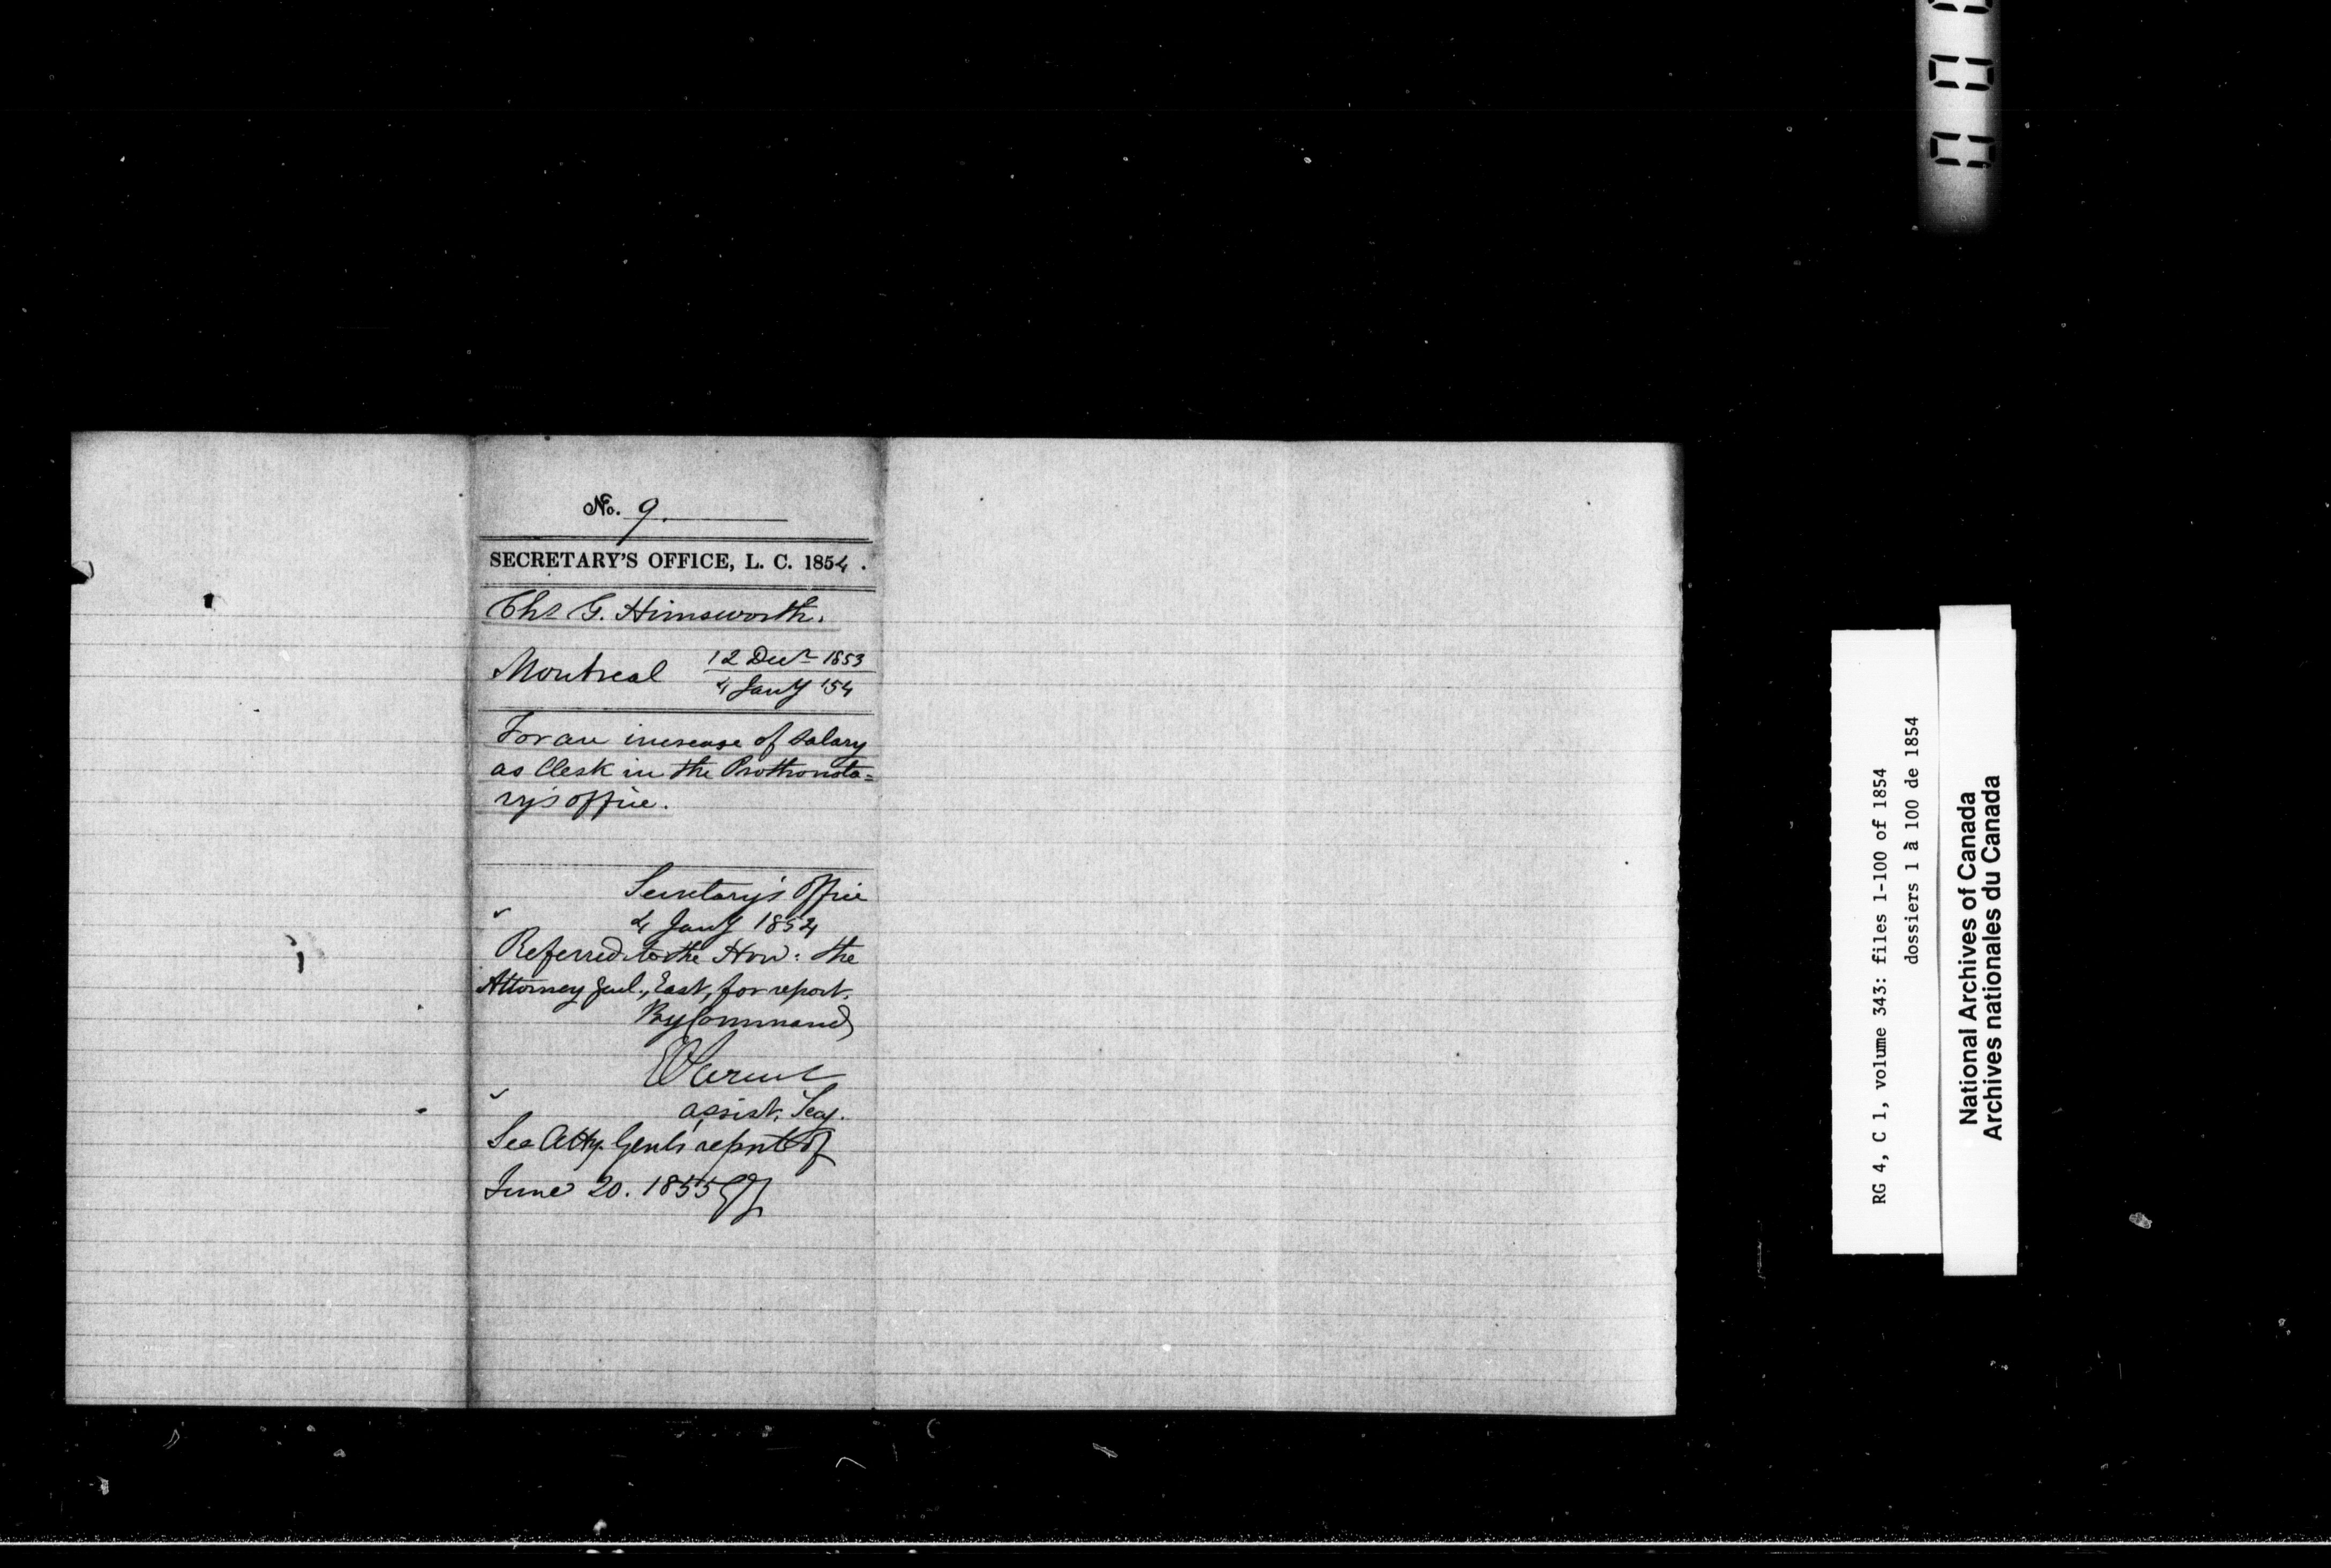 No. 9.
SECRETARY'S OFFICE, L. C. 1854.
Chs G. Himsworth.
Montreal 12 Decr 1853
4 Jany '54
For an increase of salary
as Clerk in the Prothonota=
ry's office.
Secretary's Office
4 Jany 1854
Referred to the Hon: the
Attorney Genl., East, for report.
By Command
E Parent
assist. Secy.
See Atty. Genl's report of
June 20. 1855
RG 4, C 1, volume 343: files 1-100 of 1854
dossiers 1 à 100 de 1854
National Archives of Canada
Archives nationales du Canada